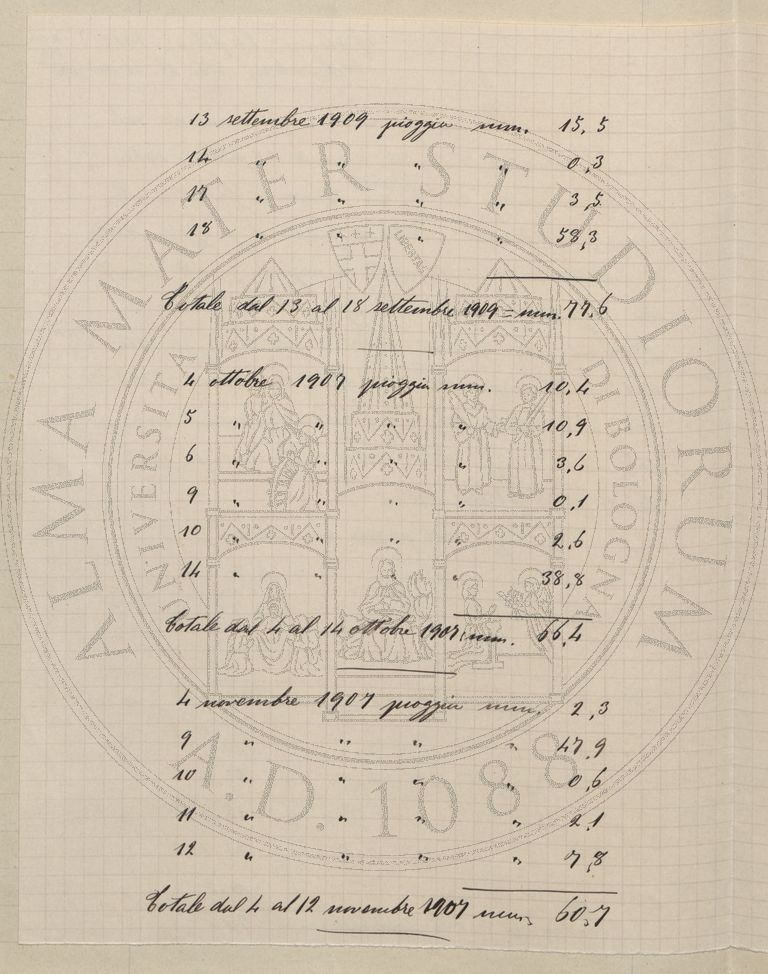 13 settembre 1909 pioggia mm. 15,5
14 " " " " 0,3
17 " " " " 3,5
18 " " " " 58,3
Totale dal 13 al 18 settembre 1909 = mm. 77,6
4 ottobre 1907 pioggia mm. 10,4
5 " " " " 10,9
6 " " " " 3,6
9 " " " " 0,1
10 " " " " 2,6
14 " " " " 38,8
Totale dal 4 al 14 ottobre 1907 mm. 66,4
4 novembre 1907 pioggia mm. 2,3
9 " " " " 47,9
10 " " " " 0,6
11 " " " " 2,1
12 " " " " 7,8
Totale dal 4 al 12 novembre 1907 mm. 60,7
ALMA MATER STUDIORUM
UNIVERSITA DI BOLOGNA
LIBERTAS
A.D. 1088